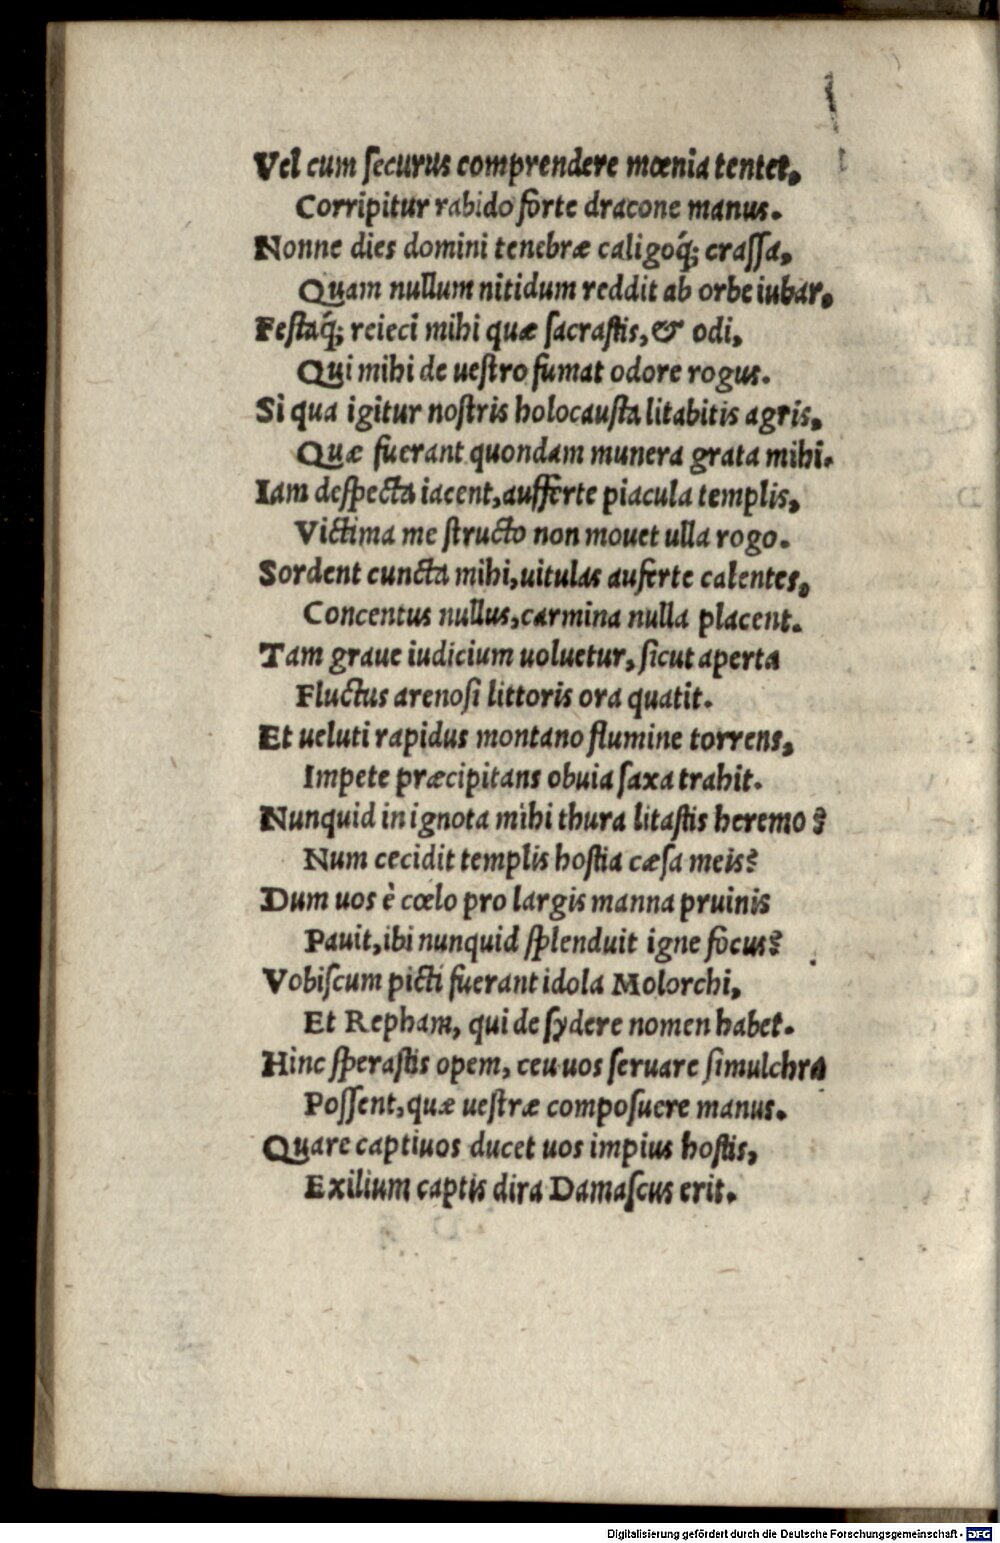 Vel cum ſecurus comprendere mœnia tentet,
Corripitur rabido forte dracone manus.
Nonne dies domini tenebræ caligoq́; craſſa,
Quam nullum nitidum reddit ab orbe iubar,
Feſtaq́; reieci mihi quæ ſacraſtis, & odi,
Qui mihi de ueſtro fumat odore rogus.
Si qua igitur noſtris holocauſta litabitis agris,
Quæ fuerant quondam munera grata mihi.
Iam deſpecta iacent, aufferte piacula templis,
Victima me ſtructo non mouet ulla rogo.
Sordent cuncta mihi, uitulas auferte calentes,
Concentus nullus, carmina nulla placent.
Tam graue iudicium uoluetur, ſicut aperta
Fluctus arenoſi littoris ora quatit.
Et ueluti rapidus montano flumine torrens,
Impete præcipitans obuia ſaxa trahit.
Nunquid in ignota mihi thura litaſtis heremo?
Num cecidit templis hoſtia cæſa meis?
Dum uos è cœlo pro largis manna pruinis
Pauit, ibi nunquid ſplenduit igne focus?
Vobiſcum picti fuerant idola Molorchi,
Et Repham, qui de ſydere nomen habet.
Hinc ſperaſtis opem, ceu uos ſeruare ſimulchra
Poſſent, quæ ueſtræ compoſuere manus.
Quare captiuos ducet uos impius hoſtis,
Exilium captis dira Damaſcus erit.
Digitalisierung gefördert durch die Deutsche Forschungsgemeinschaft - DFG